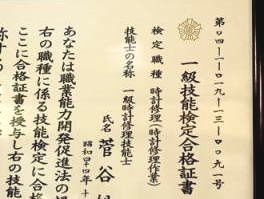 第〇四一一〇一九一一三一〇〇九一号
一級技能検定合格証書
検定職種 時計修理(時計修理作業)
技能士の名称 一級時計修理技能士
氏名 菅谷
昭和四十四年十
あなたは職業能力開発促進法の
右の職種に係る技能検定に合格
ここに合格証書を授与し右の技能
称する